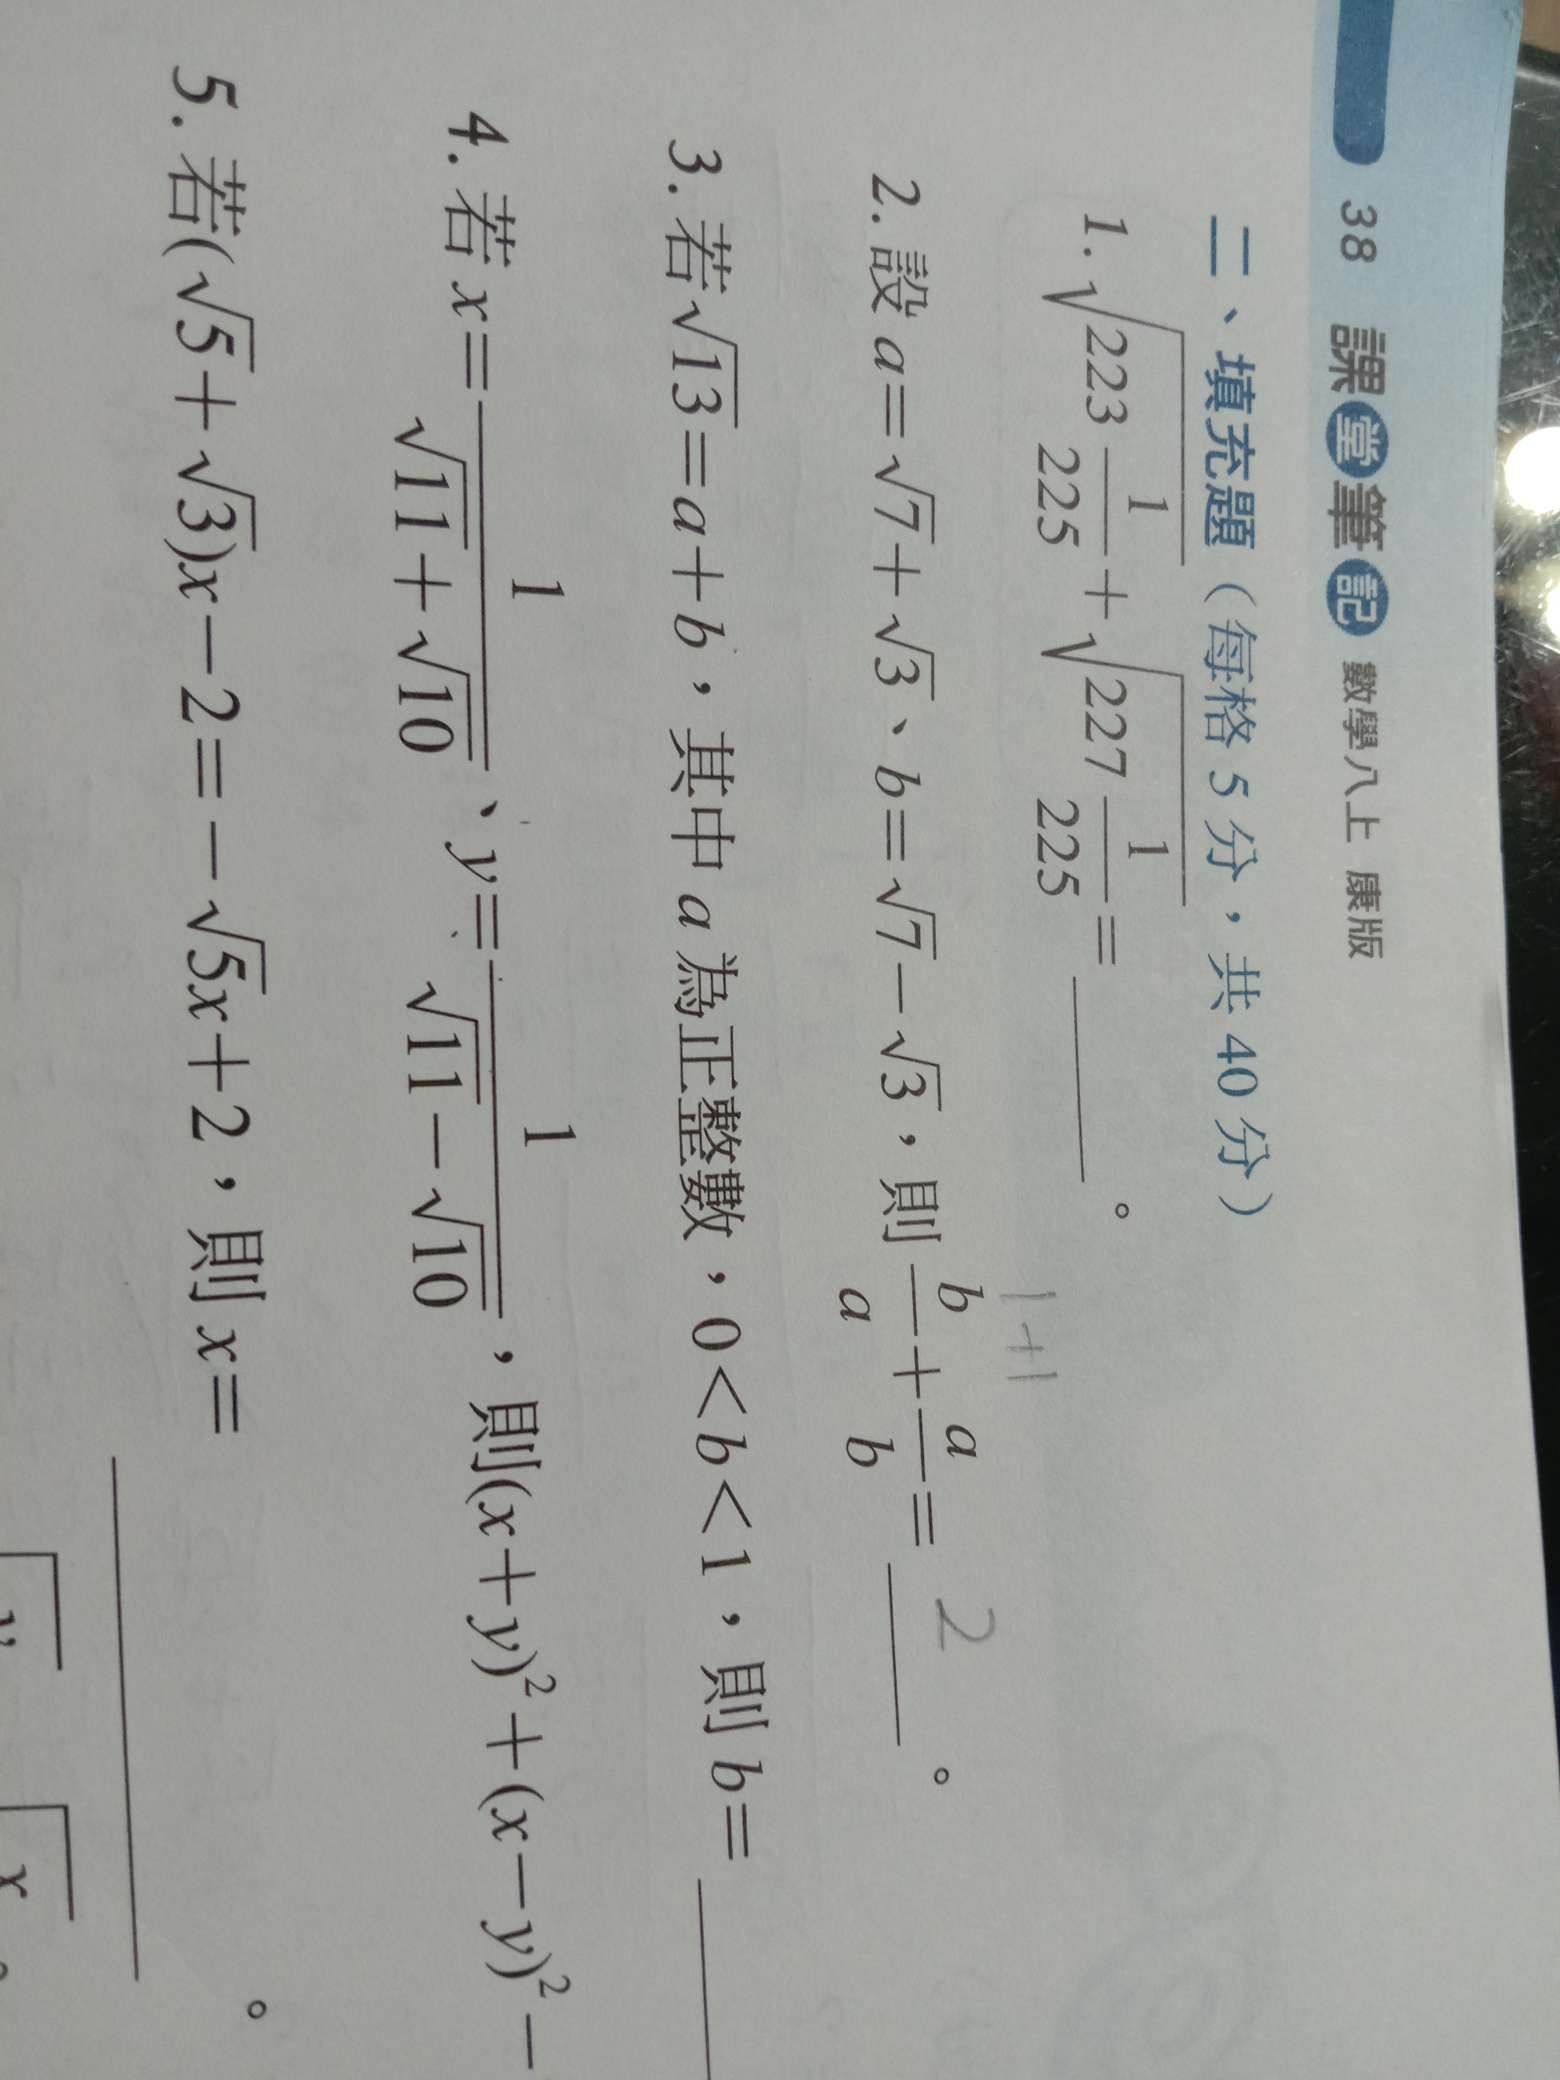 38 課堂筆記 數學八上 康版
二、填充題(每格 5 分，共 40 分)
1. √(223 1/225) + √(227 1/225) = ______。
1+1
2. 設 a=√7+√3、b=√7−√3，則 b/a + a/b = 2 。
3. 若√13=a+b，其中 a 為正整數，0<b<1，則 b=
4. 若 x= 1/(√11+√10)、y= 1/(√11−√10)，則(x+y)²+(x−y)²−
5. 若(√5+√3)x−2=−√5x+2，則 x= ______。